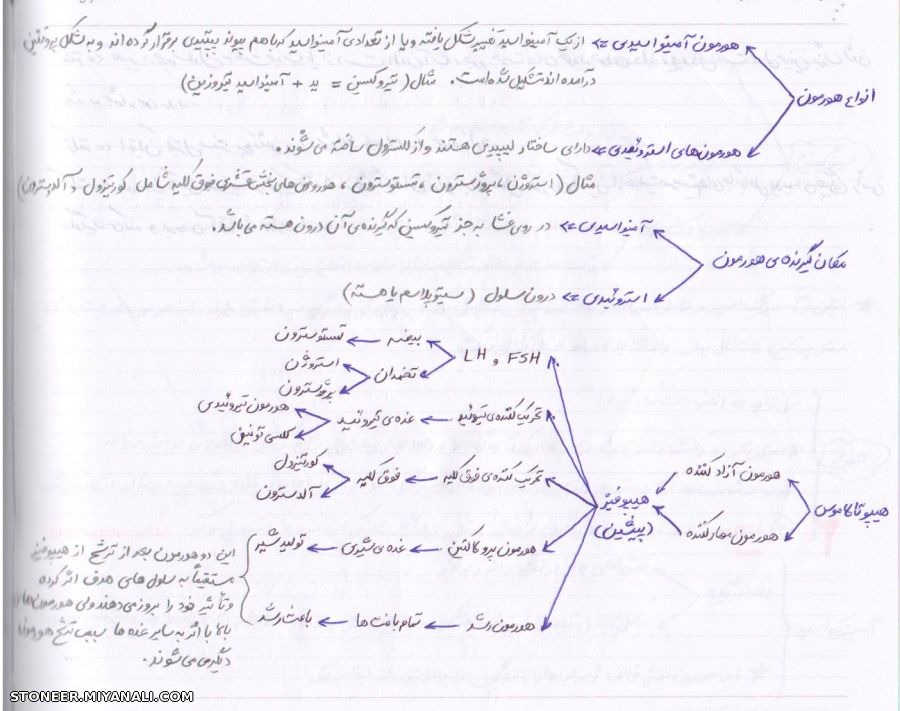 انواع هورمون
هورمون آمینواسیدی => از یک آمینواسید تغییر شکل یافته و یا از تعدادی آمینواسید که با هم پیوند پپتیدی برقرار کرده اند و به شکل پروتئین
درآمده اند تشکیل شده است. مثال (تیروکسین = ید + آمینواسید تیروزین)
هورمون های استروئیدی => دارای ساختار لیپیدی هستند و از کلسترول ساخته می شوند.
مثال (استروژن، پروژسترون، تستوسترون، هورمون های بخش قشری فوق کلیه شامل کورتیزول و آلدوسترون)
مکان گیرنده ی هورمون
آمینواسیدی => در روی غشا به جز تیروکسین که گیرنده ی آن درون هسته می باشد.
استروئیدی => درون سلول (سیتوپلاسم یا هسته)
هیپوتالاموس
هورمون آزاد کننده
هورمون مهار کننده
هیپوفیز
(پیشین)
LH و FSH
بیضه تستوسترون
تخمدان استروژن
پروژسترون
تحریک کننده ی تیروئید غده ی تیروئید هورمون تیروئیدی
کلسی تونین
تحریک کننده ی فوق کلیه فوق کلیه کورتیزول
آلدسترون
هورمون پرولاکتین غده ی شیری تولید شیر
هورمون رشد تمام بافت ها باعث رشد
این دو هورمون بعد از ترشح از هیپوفیز
مستقیماً به سلول های هدف اثر کرده
و تأثیر خود را بروز می دهند ولی هورمون های
بالا با اثر به سایر غده ها سبب ترشح هورمون
دیگری می شوند.
STONEER.MIYANALI.COM